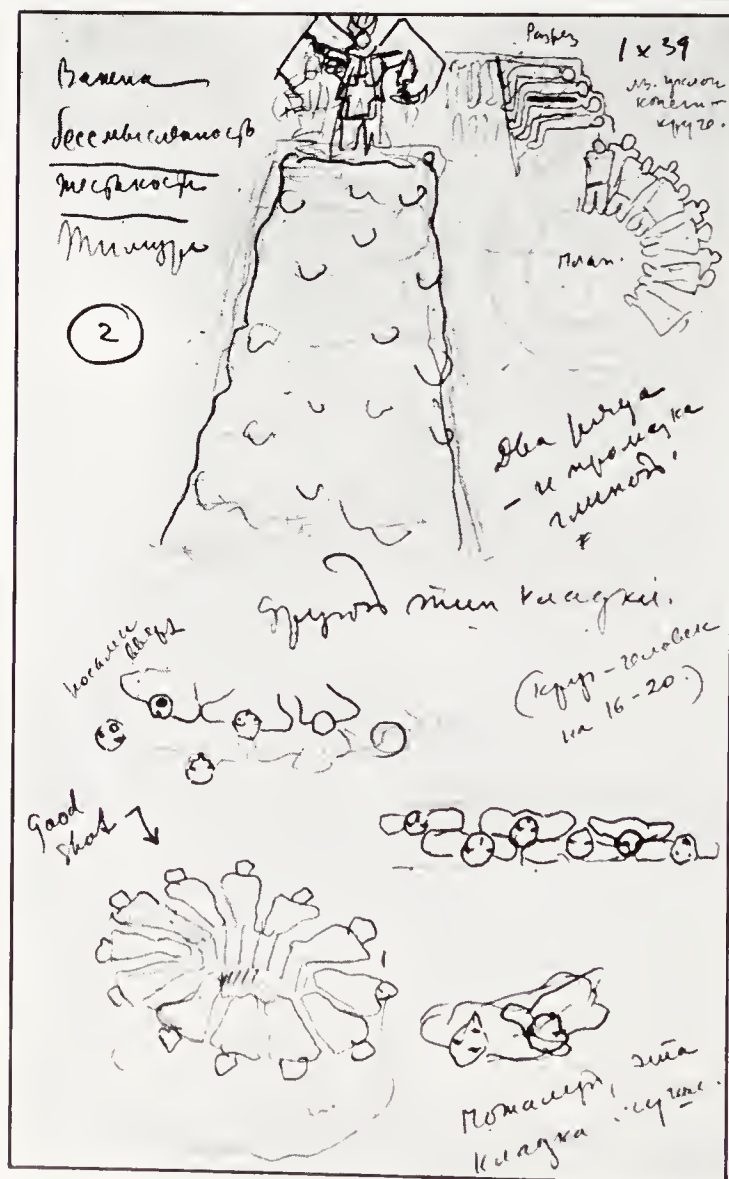 Важна
бессмысленность
жестокости
Тимура
2
Разрез
1 x 39
круге.
План.
Два ряда
– и промазка
глиной!
Другой тип кладки.
носами
вверх
(круг – человек
на 16-20.)
Good
shot
Пожалуй, эта
кладка лучше.